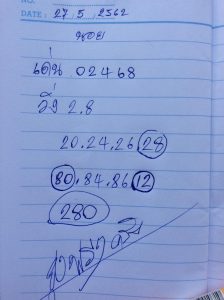 NO.
DATE : 27 / 5 / 2562
นอย
เด่น 02468
วิ่ง 2.8
20.24.26.28
80.84.86.12
280